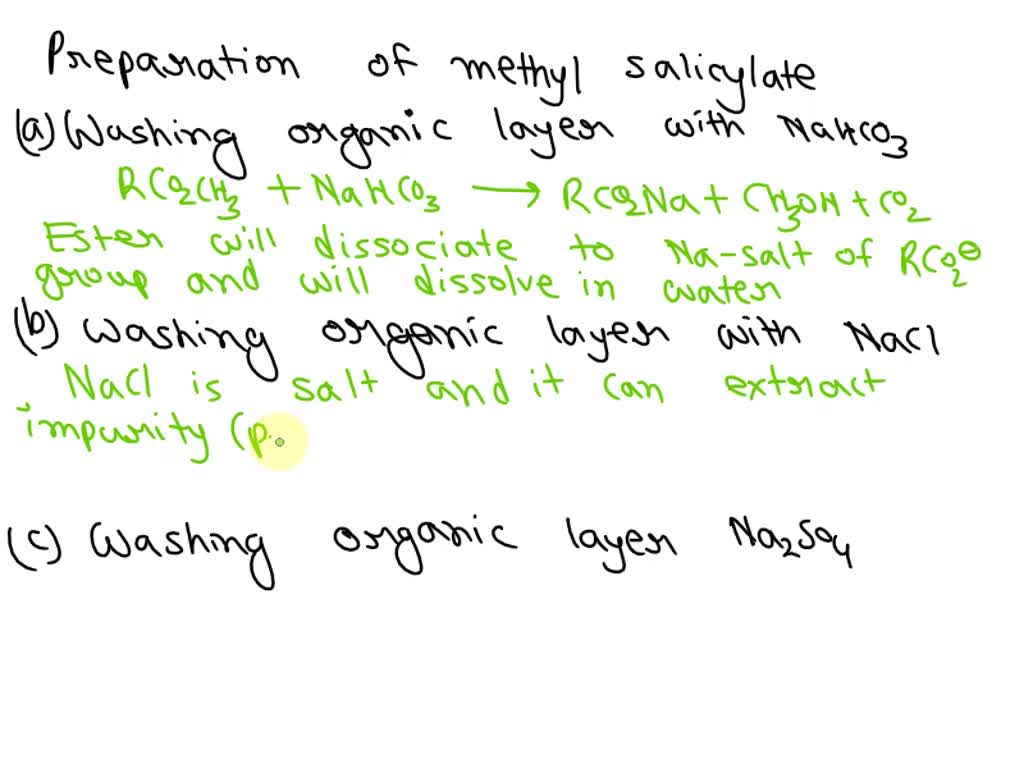 Preparation of methyl salicylate
(a) Washing organic layer with NaHCO3
RCO2CH3 + NaHCO3 → RCO2Na + CH3OH + CO2
Ester will dissociate to Na-salt of RCO2⊖
group and will dissolve in water
(b) Washing organic layer with NaCl
NaCl is salt and it can extract
impurity (p
(c) Washing organic layer Na2SO4